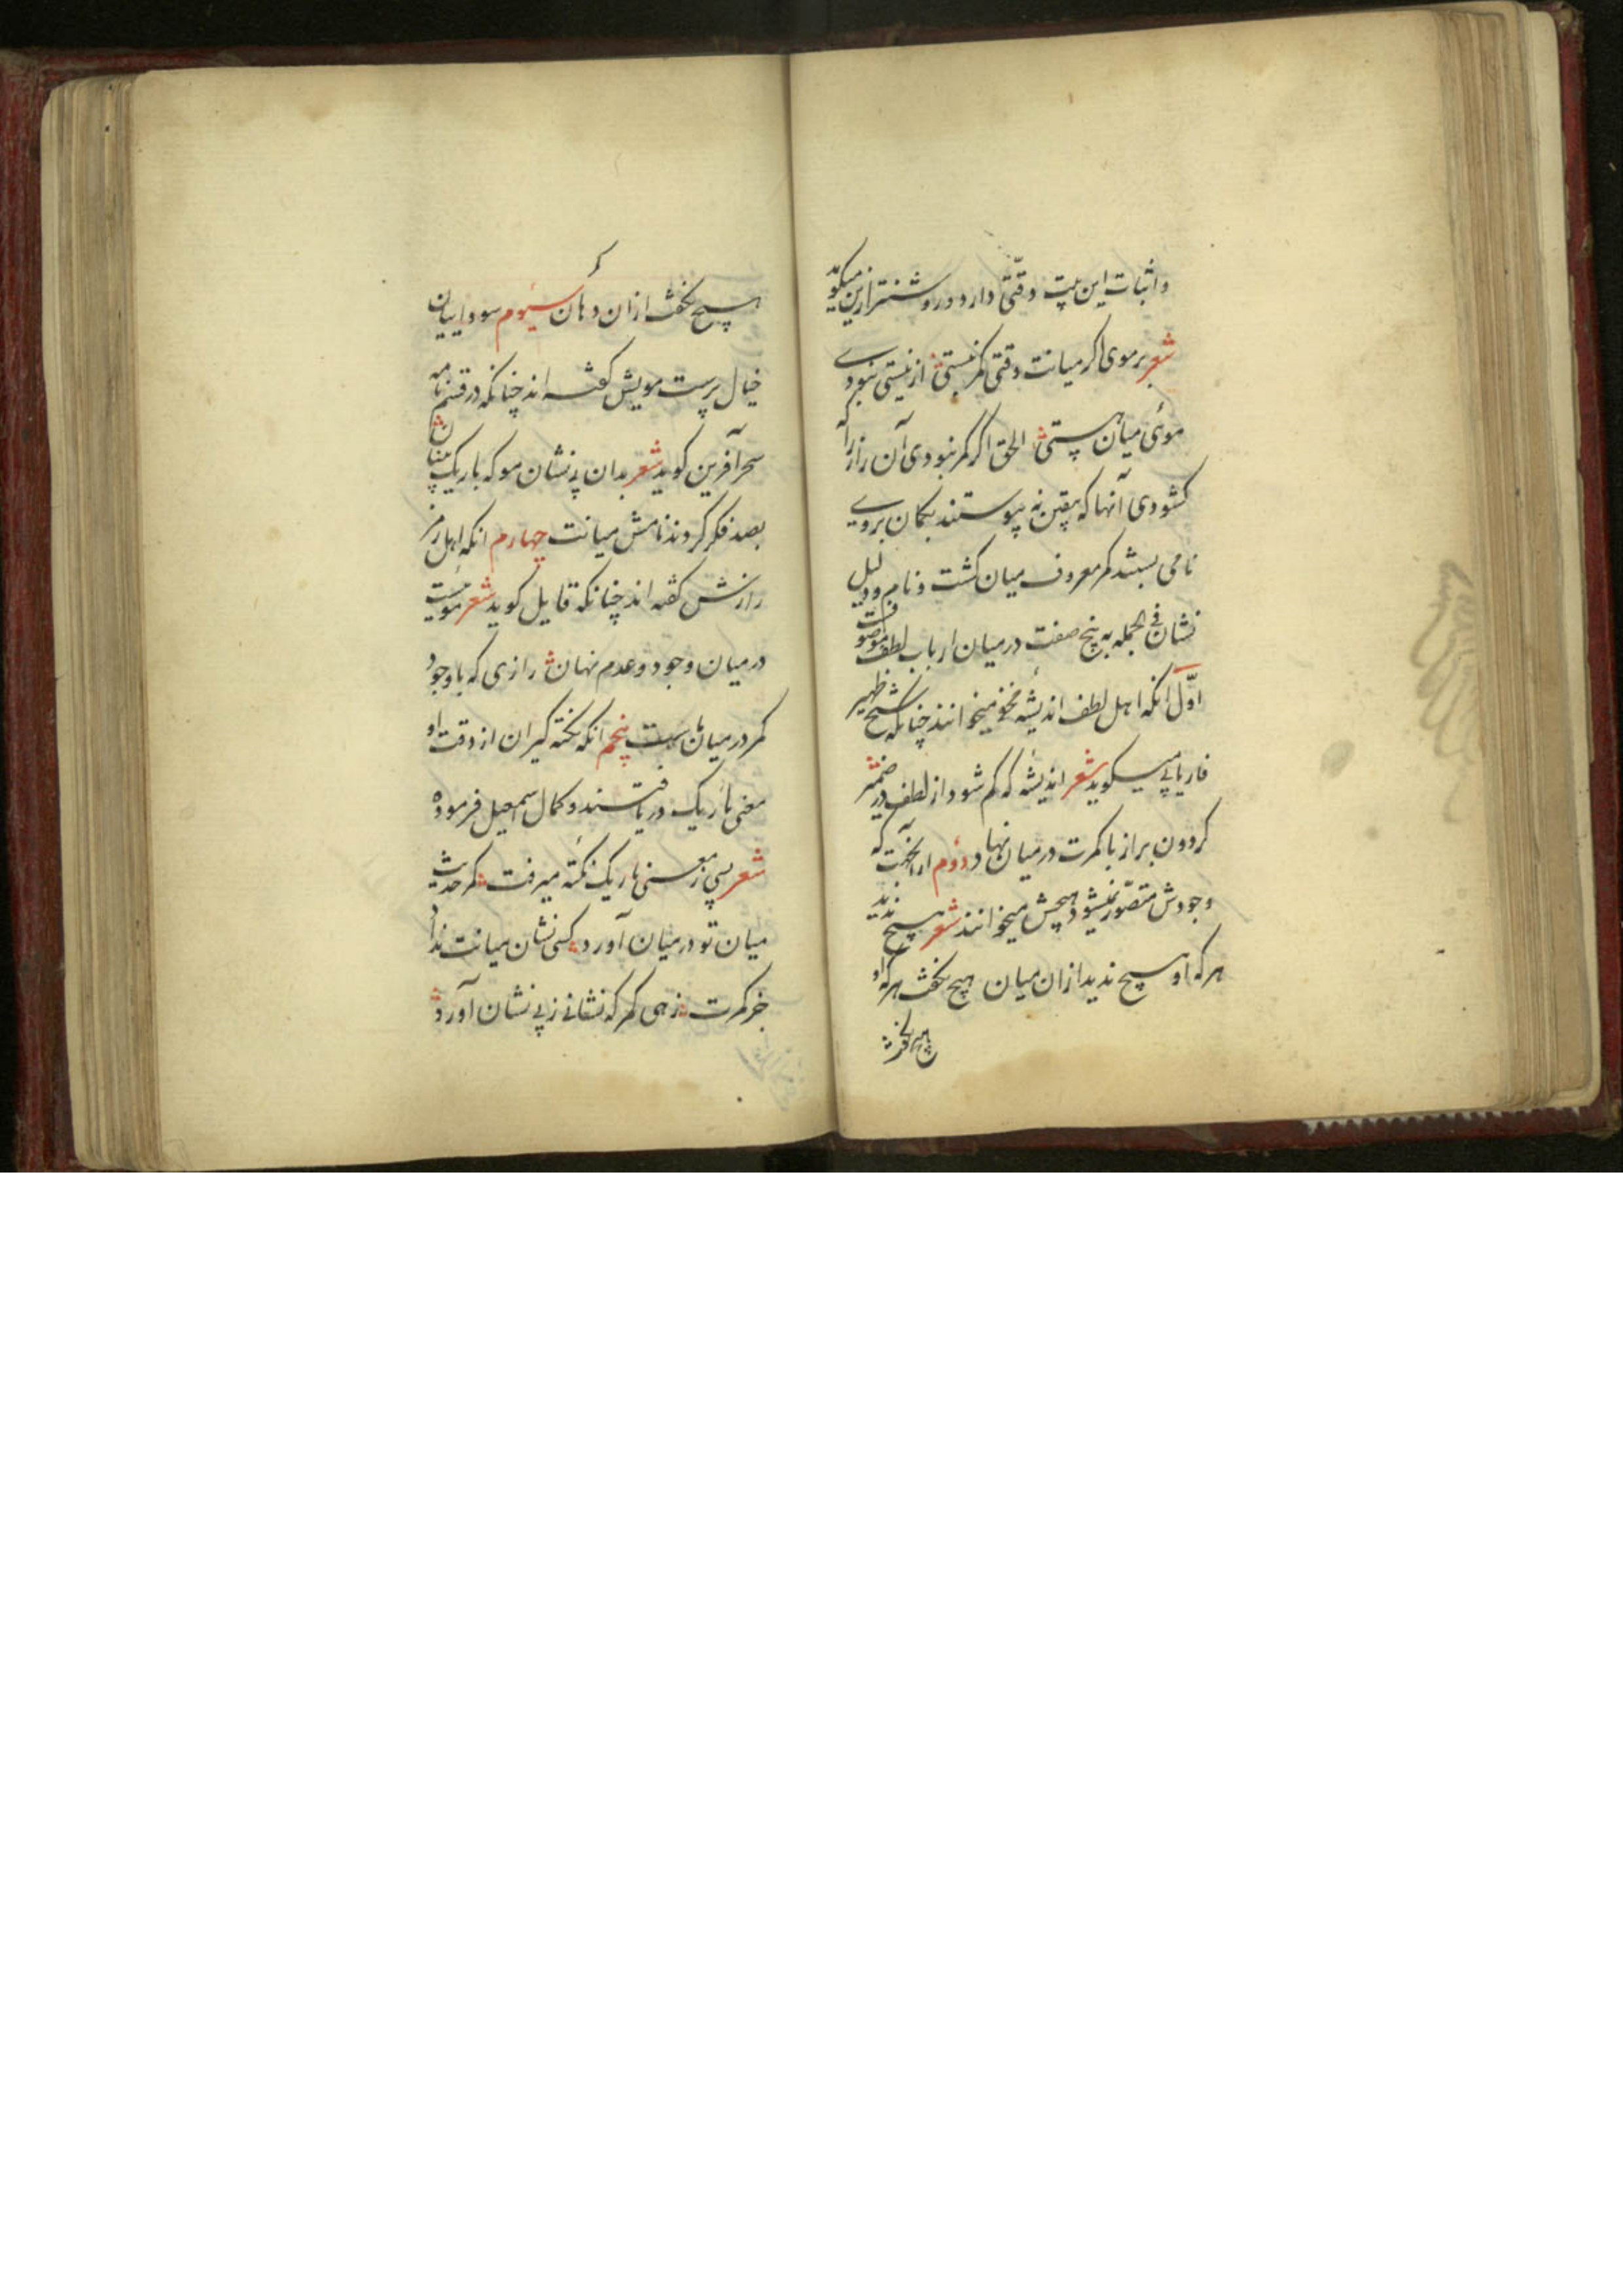 واثبات این بیت دقتی دارد و روشنتر ازین میکوید
شعر بر موی اکر میانت دقتی کمر نبستی از نیستی نبودے
موئی میان هستی الحق اکر کمر نبودی آن راز را که
کشودی آنها که بیقین نه پیوستند بکمان بر وے
نامی بستند کمر معروف میان کشت و نام و دلیل
نشان فی الجمله به پنج صفت در میان ارباب لطف موصوفست
اوّل انکه اهل لطف اندیشه میخوانند چنانکه شیخ ظهیر
فاریابی میکوید شعر اندیشهٔ که کم شود از لطف در ضمیر
کردون براز با کمرت در میان نهاد دوم از انجهت که
وجودش متصوّر نمیشود هیچش میخوانند شعر هیچ ندید
هر که او هیچ ندید ازان میان هیچ نکفت هر که او
هیچ نکفت
هیچ نکفت ازان دهان سیوم سوداییان
خیال پرست مویش کفته اند چنانکه در قسم نامه
سحر آفرین کوید شعر بدان بی نشان مو که باریک بینان
بصد فکر کردند نامش میانت چهارم انکه اهل رمز
رازش کفته اند چنانکه قایل کوید شعر موئیست
در میان وجود و عدم نهان رازی که با وجود
کمر در میان هست پنجم انکه نکته کیران از دقت او
معنی باریک دریافتند و کمال اسمعیل فرموده
شعر بسی ز معنی باریک نکته میرفت کمر حدیث
میان تو در میان آورد کسی نشان میانت نداد
جز کمرت زهی کمر که نشانے ز بی نشان آورد